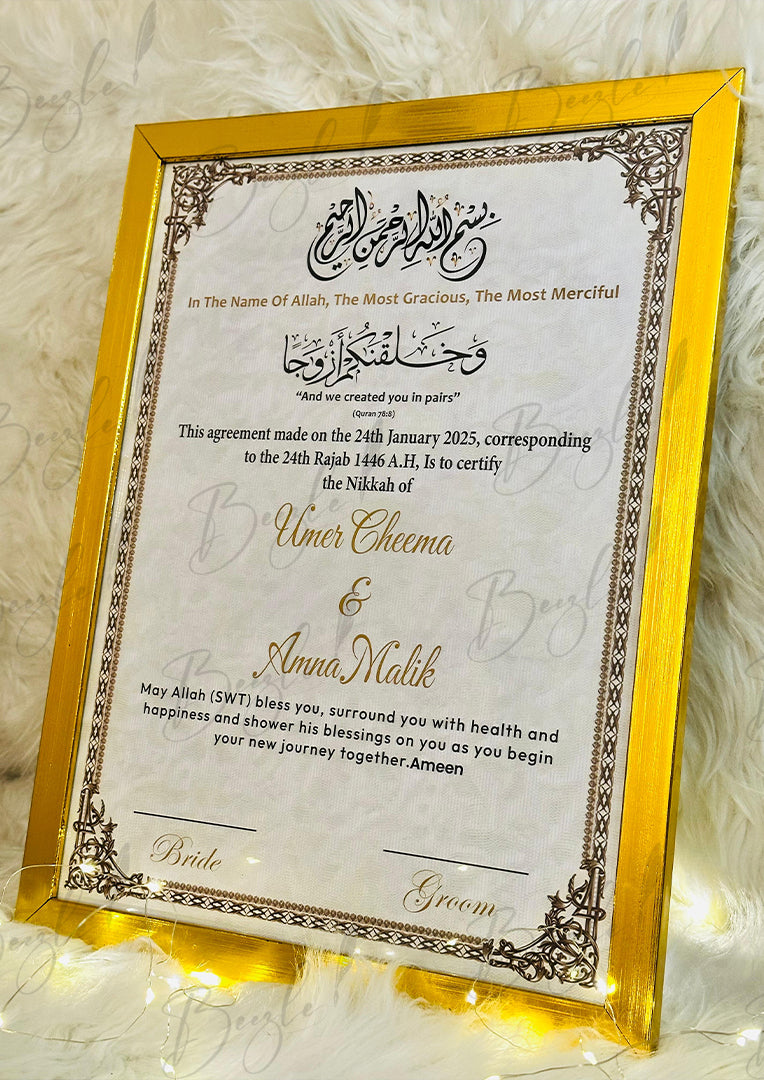 بِسْمِ اللهِ الرَّحْمَنِ الرَّحِيمِ
In The Name Of Allah, The Most Gracious, The Most Merciful
وَخَلَقْنَكُمْ أَزْوَجًا
“And we created you in pairs”
(Quran 78:8)
This agreement made on the 24th January 2025, corresponding
to the 24th Rajab 1446 A.H, Is to certify
the Nikkah of
Umer Cheema
&
Amna Malik
May Allah (SWT) bless you, surround you with health and
happiness and shower his blessings on you as you begin
your new journey together.Ameen
Bride
Groom
Beezle